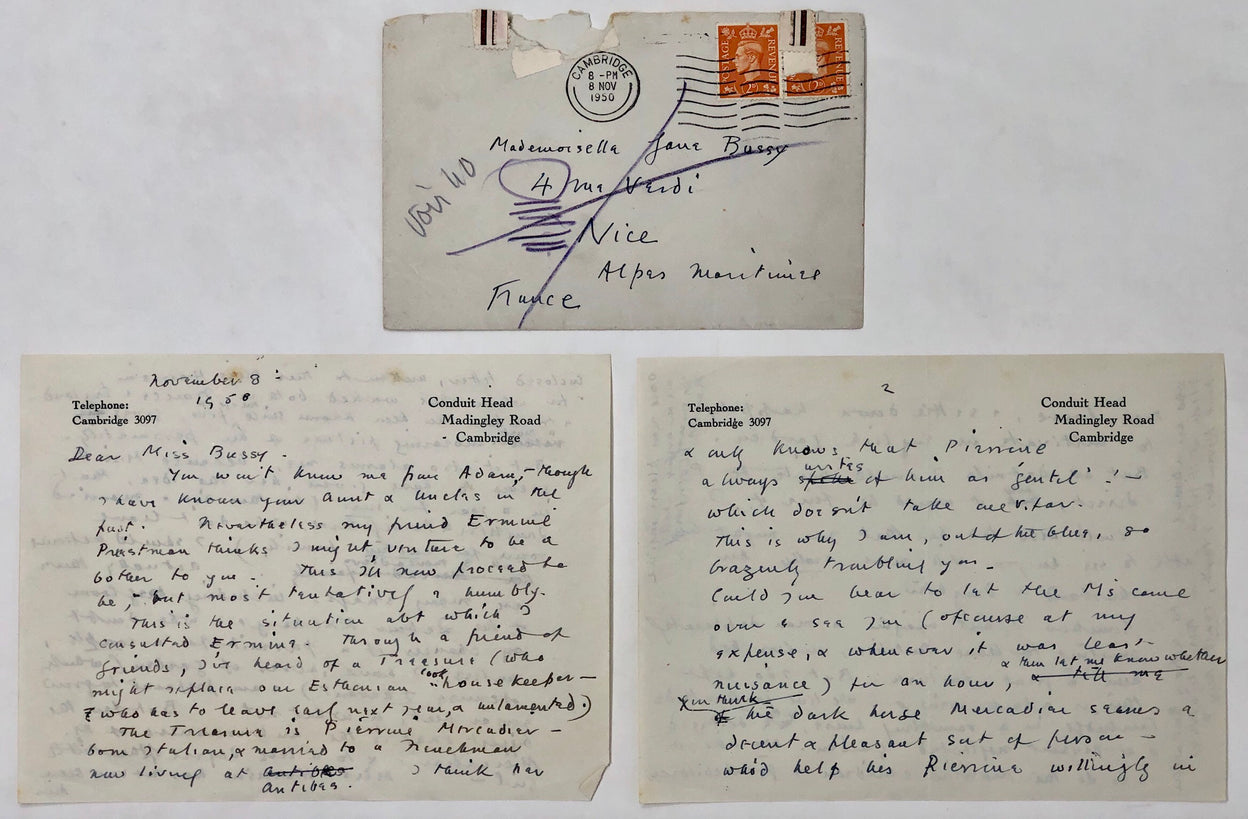 CAMBRIDGE
8 - PM
8 NOV
1950
POSTAGE REVENUE
Mademoiselle Jane Bussy
4 rue Verdi
Nice
Alpes Maritimes
France
voir 40
November 8
1950
Telephone:
Cambridge 3097
Conduit Head
Madingley Road
Cambridge
Dear Miss Bussy -
You won't know me from Adam, - though
I have known your Aunt & Uncles in the
past. Nevertheless my friend Ermine
Priestman thinks I might venture to be a
bother to you. This I'll now proceed to
be, - but most tentatively & humbly.
This is the situation abt which I
consulted Ermine. Through a friend of
friends, I've heard of a Treasure (who
might replace our Esthonian "cook housekeeper -
who has to leave early next year, & unlamented.)
The Treasure is Pierrine Mercadier -
born Italian, & married to a Frenchman
now living at Antibes I think her
Antibes.
2
Telephone:
Cambridge 3097
Conduit Head
Madingley Road
Cambridge
& only knows that Pierrine
always writes of him as 'gentil'! -
which doesn't take one v. far.
This is why I am, out of the blue, so
brazenly troubling you -
Could you bear to let the Ms come
over & see you (of course at my
expense, & whenever it was least
nuisance) for an hour, & tell me
& then let me know whether
you think
the dark horse Mercadier seems a
decent & pleasant sort of person -
who'd help his Pierrine willingly in